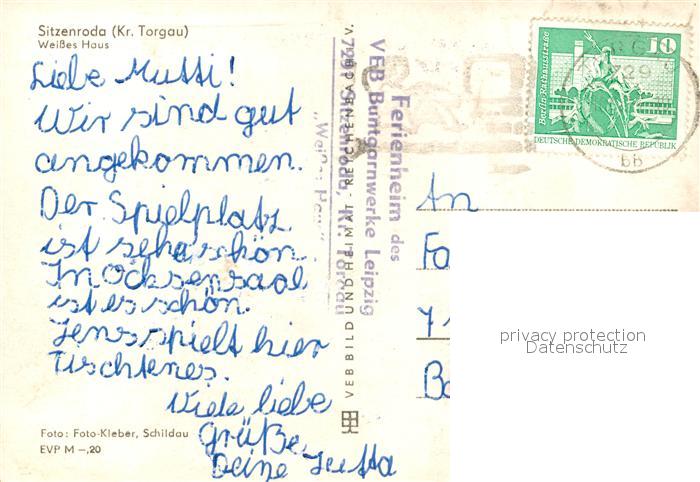 Sitzenroda (Kr. Torgau)
Weißes Haus
Liebe Mutti!
Wir sind gut
angekommen.
Der Spielplatz
ist sehr schön.
Im Ochsensaal
ist es schön.
Jens spielt hier
Tischtenes.
Viele liebe
Grüße,
Deine Jutta
Foto: Foto-Kleber, Schildau
EVP M –,20
VEB BILD UND HEIMAT REICHENBACH i. V.
Ferienheim des
VEB Buntgarnwerke Leipzig
729 Sitzenroda, Kr. Torgau
„Weißes Haus"
10
Berlin, Rathausstraße
DEUTSCHE DEMOKRATISCHE REPUBLIK
729
bb
An
privacy protection
Datenschutz